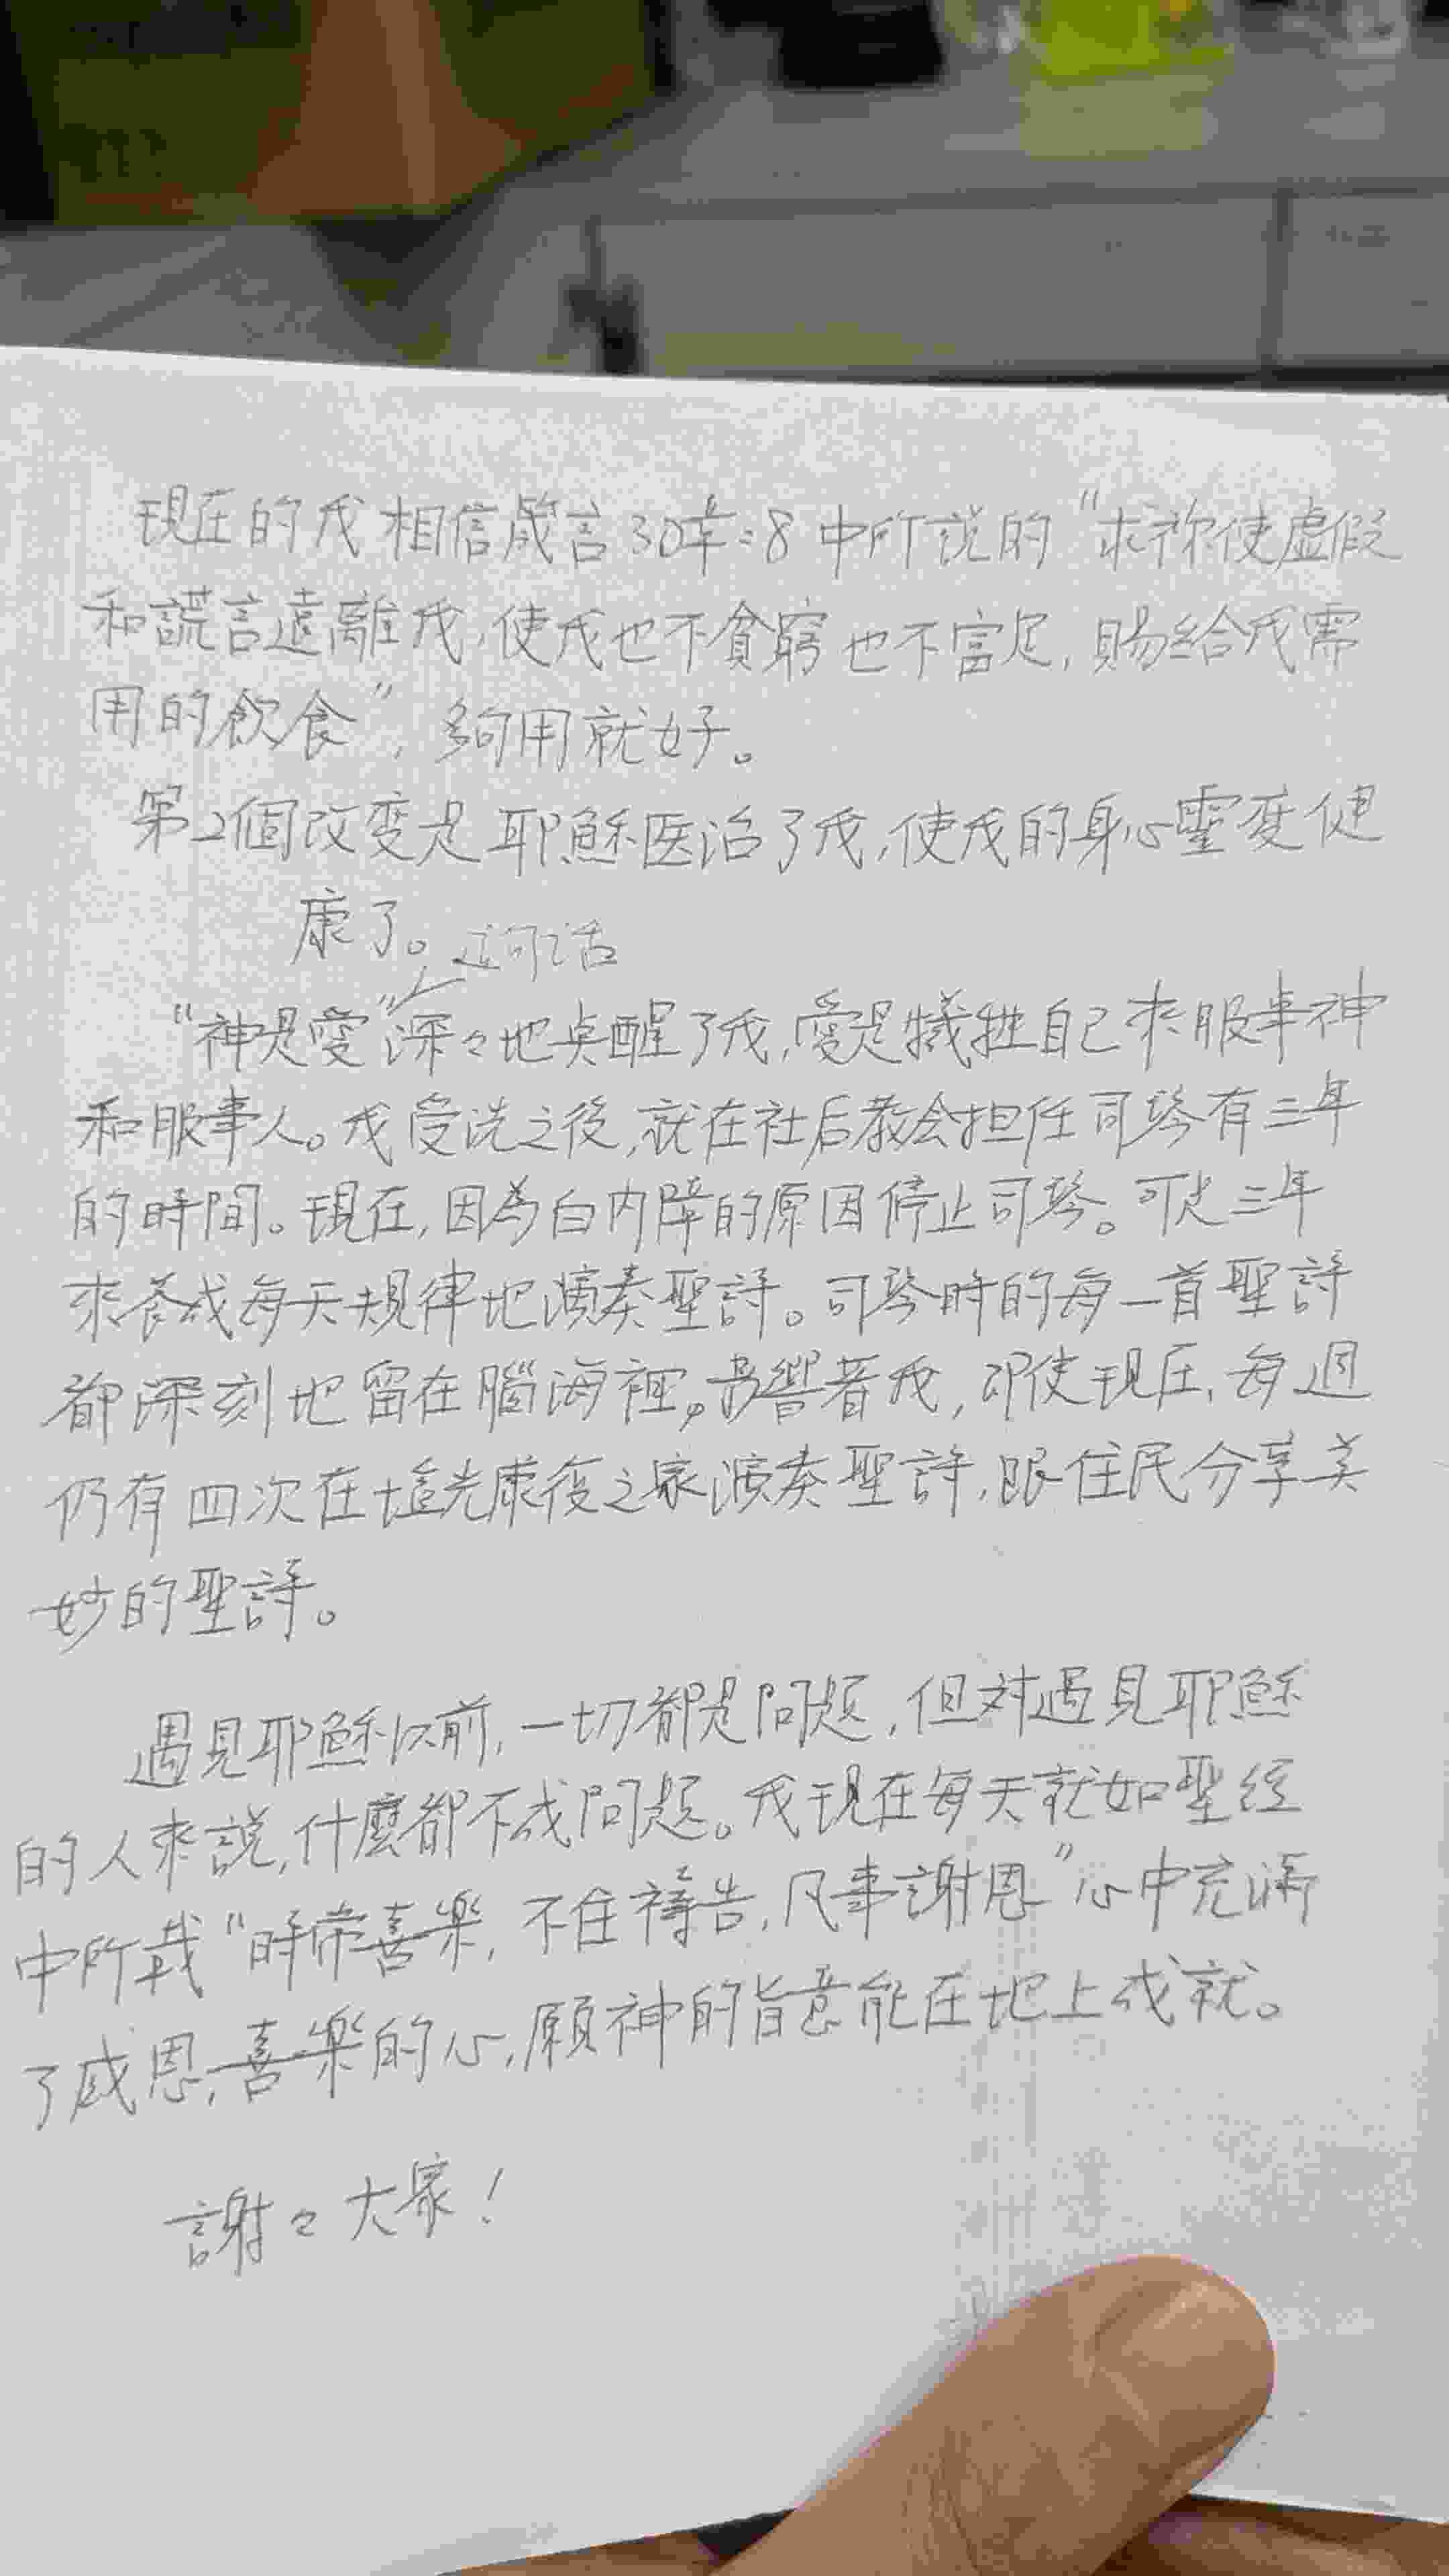 現在的我相信箴言30章:8中所說的“求祢使虛假
和謊言遠離我,使我也不貧窮也不富足,賜給我需
用的飲食”,夠用就好。
第2個改变是耶穌医治了我,使我的身心靈变健
康了。
這句话
“神是愛”深々地喚醒了我,愛是犧牲自己來服事神
和服事人。我受洗之後,就在社后教会担任司琴有三年
的時間。現在,因為白内障的原因停止司琴。可是三年
來养成每天規律地演奏聖詩。司琴時的每一首聖詩
都深刻地留在腦海裡,影響著我,即使現在,每週
仍有四次在 康復之家演奏聖詩,跟住民分享美
妙的聖詩。
遇見耶穌以前,一切都是问题,但对遇見耶穌
的人來說,什麼都不成问题。我現在每天就如聖经
中所載“時常喜樂,不住禱告,凡事謝恩”心中充滿
了感恩,喜樂的心,願神的旨意能在地上成就。
謝々大家!